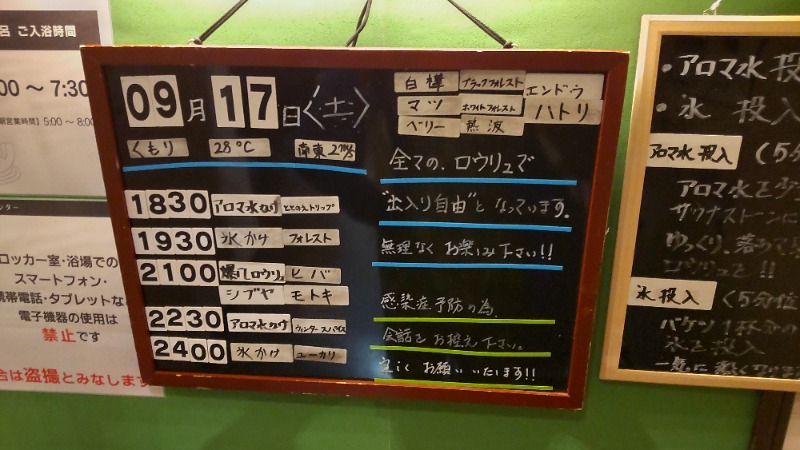 呂 ご入浴時間
00 ～ 7:30
営業時間】5:00 ～ 8:0
ロッカー室・浴場での
スマートフォン・
携帯電話・タブレットな
電子機器の使用は
禁止です
合は盗撮とみなします
09月17日〈土〉
くもり 28℃ 南東2m/s
1830 アロマ水かけ ととのえトリップ
1930 氷かけ フォレスト
2100 爆ロウリュ ヒバ
シブヤ モトキ
2230 アロマ水かけ ウィンタースパイス
2400 氷かけ ユーカリ
白樺 ブラックフォレスト エンドウ
マツ ホワイトフォレスト ハトリ
ベリー 熱波
全ての、ロウリュで
"出入り自由"となっています。
無理なくお楽しみ下さい!!
感染症予防の為、
会話をお控え下さい。
宜しくお願いいたします!!
・アロマ水投
・氷 投入
アロマ水投入 (5分
アロマ水を少
サウナストーンに
ゆっくり、落
ロウリュを!!
氷投入 (5分位
バケツ1杯分の
氷を投入
一気に